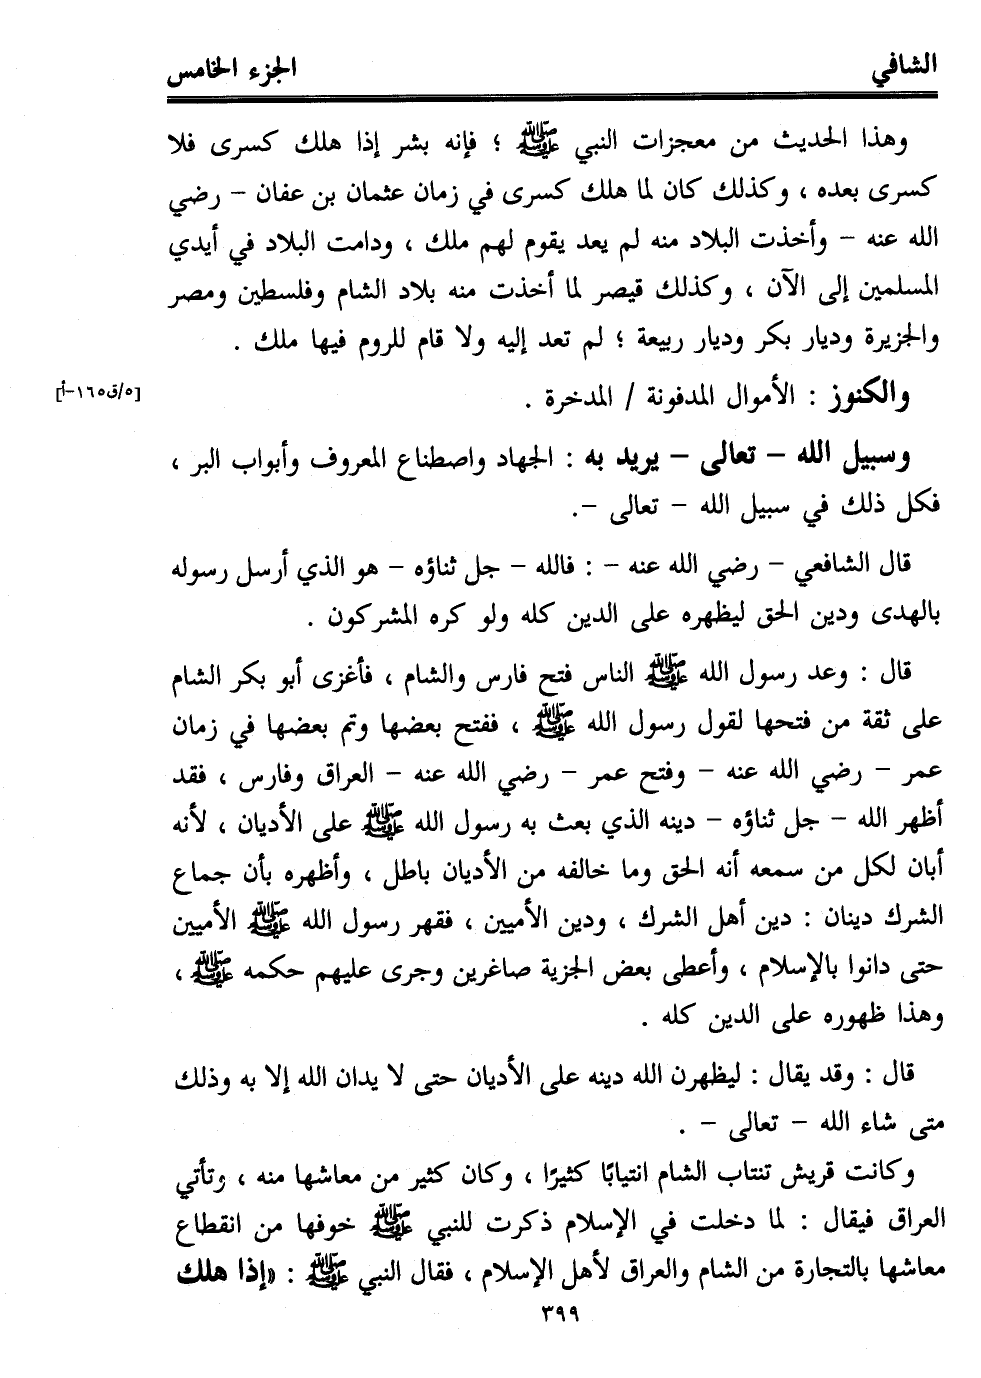 الشافي
الجزء الخامس
وهذا الحديث من معجزات النبي ﷺ ؛ فإنه بشر إذا هلك كسرى فلا
كسرى بعده ، وكذلك كان لما هلك كسرى في زمان عثمان بن عفان – رضي
الله عنه – وأخذت البلاد منه لم يعد يقوم لهم ملك ، ودامت البلاد في أيدي
المسلمين إلى الآن ، وكذلك قيصر لما أخذت منه بلاد الشام وفلسطين ومصر
والجزيرة وديار بكر وديار ربيعة ؛ لم تعد إليه ولا قام للروم فيها ملك .
والكنوز : الأموال المدفونة / المدخرة .
[٥/ق١٦٥-أ]
وسبيل الله – تعالى – يريد به : الجهاد واصطناع المعروف وأبواب البر ،
فكل ذلك في سبيل الله – تعالى –.
قال الشافعي – رضي الله عنه – : فالله – جل ثناؤه – هو الذي أرسل رسوله
بالهدى ودين الحق ليظهره على الدين كله ولو كره المشركون .
قال : وعد رسول الله ﷺ الناس فتح فارس والشام ، فأغزى أبو بكر الشام
على ثقة من فتحها لقول رسول الله ﷺ ، ففتح بعضها وتم بعضها في زمان
عمر – رضي الله عنه – وفتح عمر – رضي الله عنه – العراق وفارس ، فقد
أظهر الله – جل ثناؤه – دينه الذي بعث به رسول الله ﷺ على الأديان ، لأنه
أبان لكل من سمعه أنه الحق وما خالفه من الأديان باطل ، وأظهره بأن جماع
الشرك دينان : دين أهل الشرك ، ودين الأميين ، فقهر رسول الله ﷺ الأميين
حتى دانوا بالإسلام ، وأعطى بعض الجزية صاغرين وجرى عليهم حكمه ﷺ ،
وهذا ظهوره على الدين كله .
قال : وقد يقال : ليظهرن الله دينه على الأديان حتى لا يدان الله إلا به وذلك
متى شاء الله – تعالى – .
وكانت قريش تنتاب الشام انتيابًا كثيرًا ، وكان كثير من معاشها منه ، وتأتي
العراق فيقال : لما دخلت في الإسلام ذكرت للنبي ﷺ خوفها من انقطاع
معاشها بالتجارة من الشام والعراق لأهل الإسلام ، فقال النبي ﷺ : «إذا هلك
٣٩٩